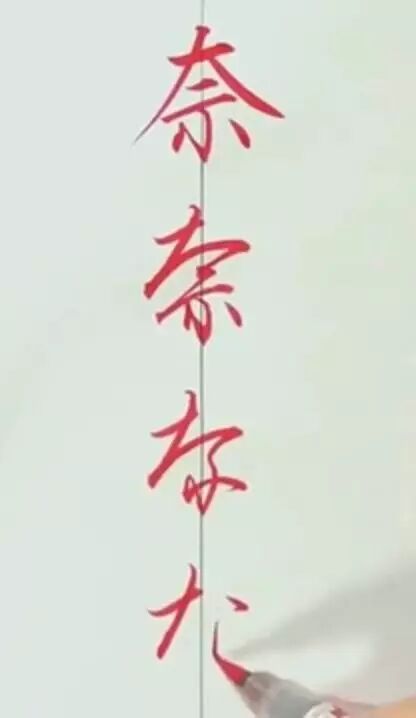 奈奈奈な